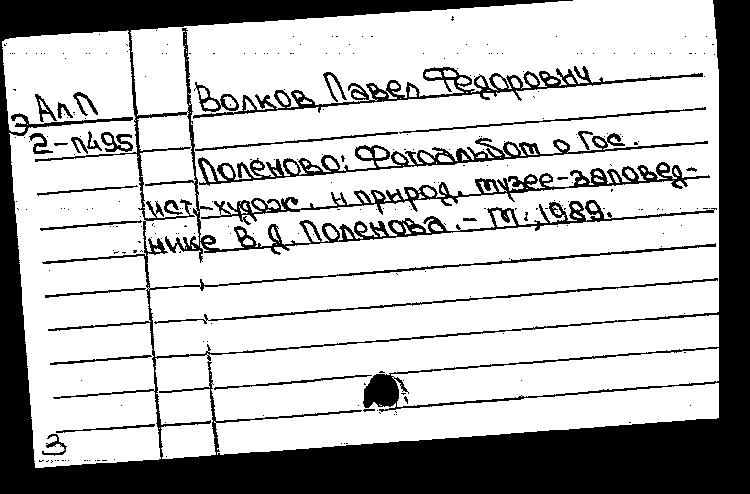 АлП
Э 2-П495
Волков, Павел Федорович.
Поленово: Фотоальбом о Гос.
ист.-худож. и природ. музее-заповед-
нике В. Д. Поленова. - М., 1989.
З